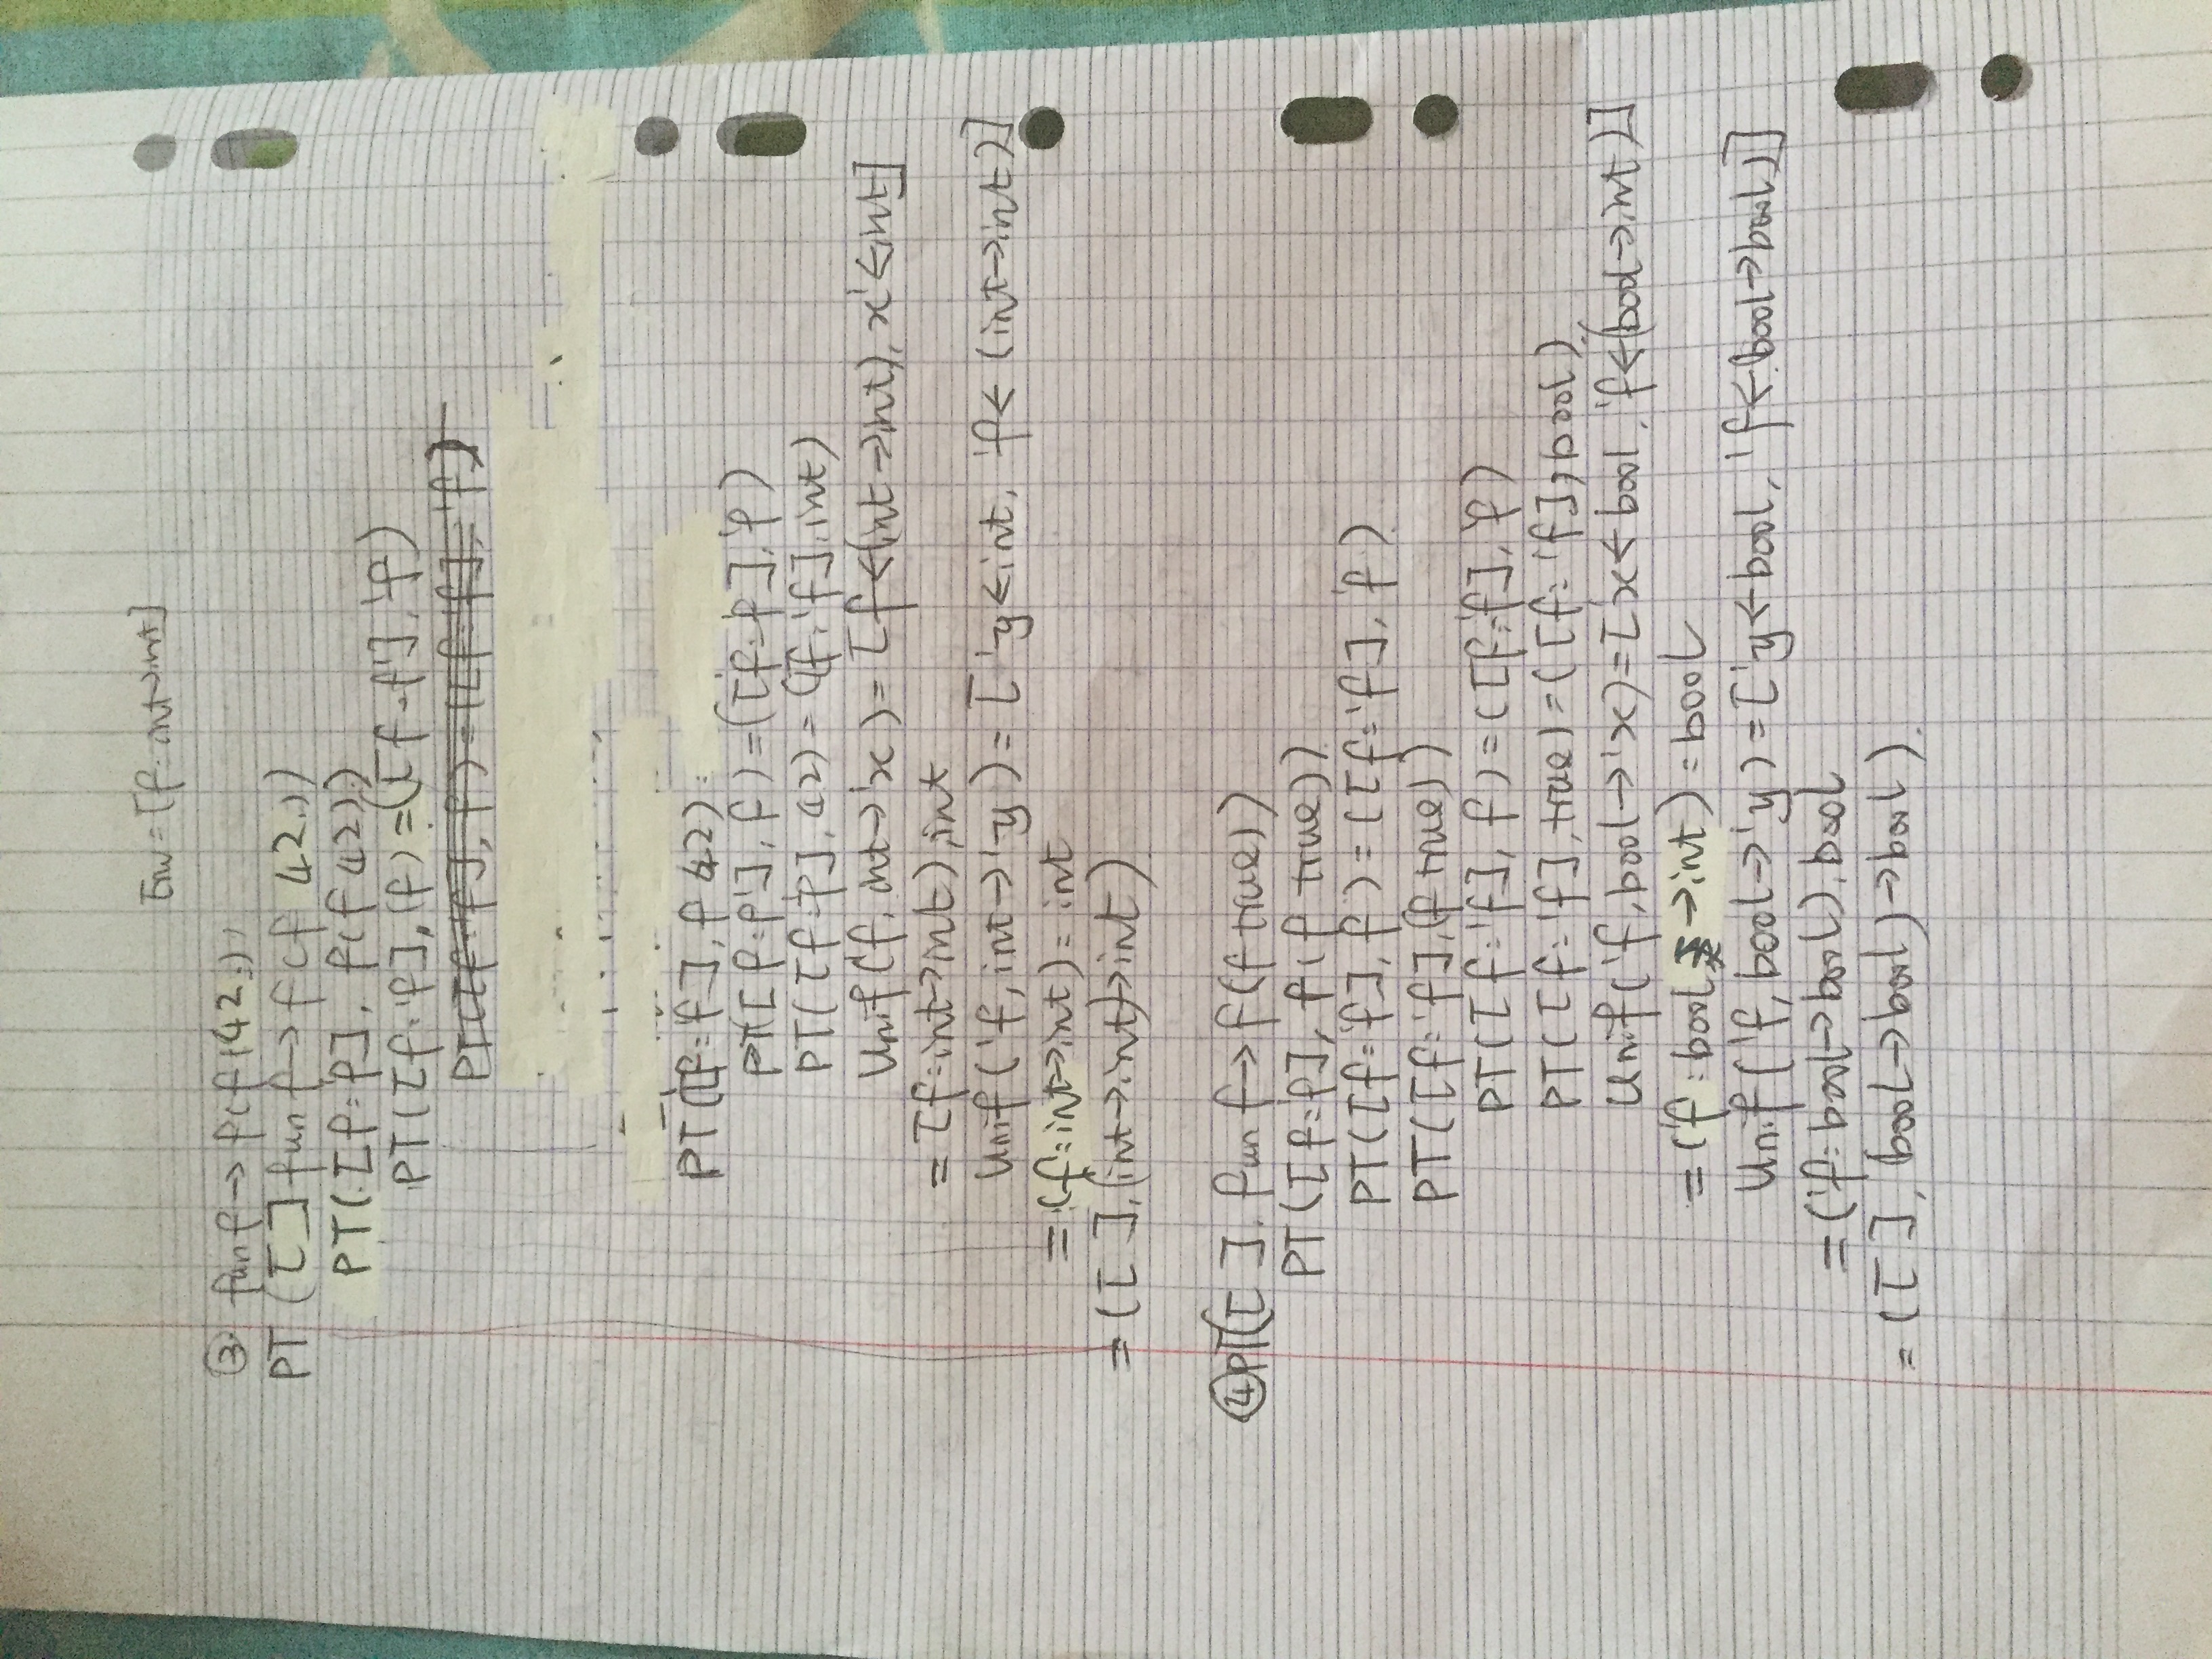 Env = [f: int→int]
③ fun f → f(f(42))
PT ([ ] fun f → f(f 42))
PT([f:'f], f(f 42))
PT([f:'f], (f) = ([f:f'], 'f)
PT([f:'f], f) = ([f:'f], 'f)
PT([f:'f], f 42)
PT([f:f'], f) = ([f:'f], 'f)
PT([f:'f], 42) = ([f:'f], int)
Unif('f, int→'x) = [f←(int→int), x'←int]
= [f:int→int), int
Unif('f, int→'y) = ['y←int, 'f←(int→int)]
= (f:int→int) = int
= ([ ], (int→int)→int)
④ PT([ ], fun f → f(f true))
PT([f:'f], f(f true))
PT([f:'f], f) = ([f:'f], 'f)
PT([f:'f], (f true))
PT([f:'f], f) = ([f:'f], 'f)
PT([f:'f], true) = ([f:'f], bool)
Unif('f, bool→'x) = ['x←bool, 'f←(bool→int)]
= ('f:bool →int) = bool
Unif('f, bool→'y) = ['y←bool, 'f←(bool→bool)]
= ('f:bool→bool), bool
= ([ ], (bool→bool)→bool).